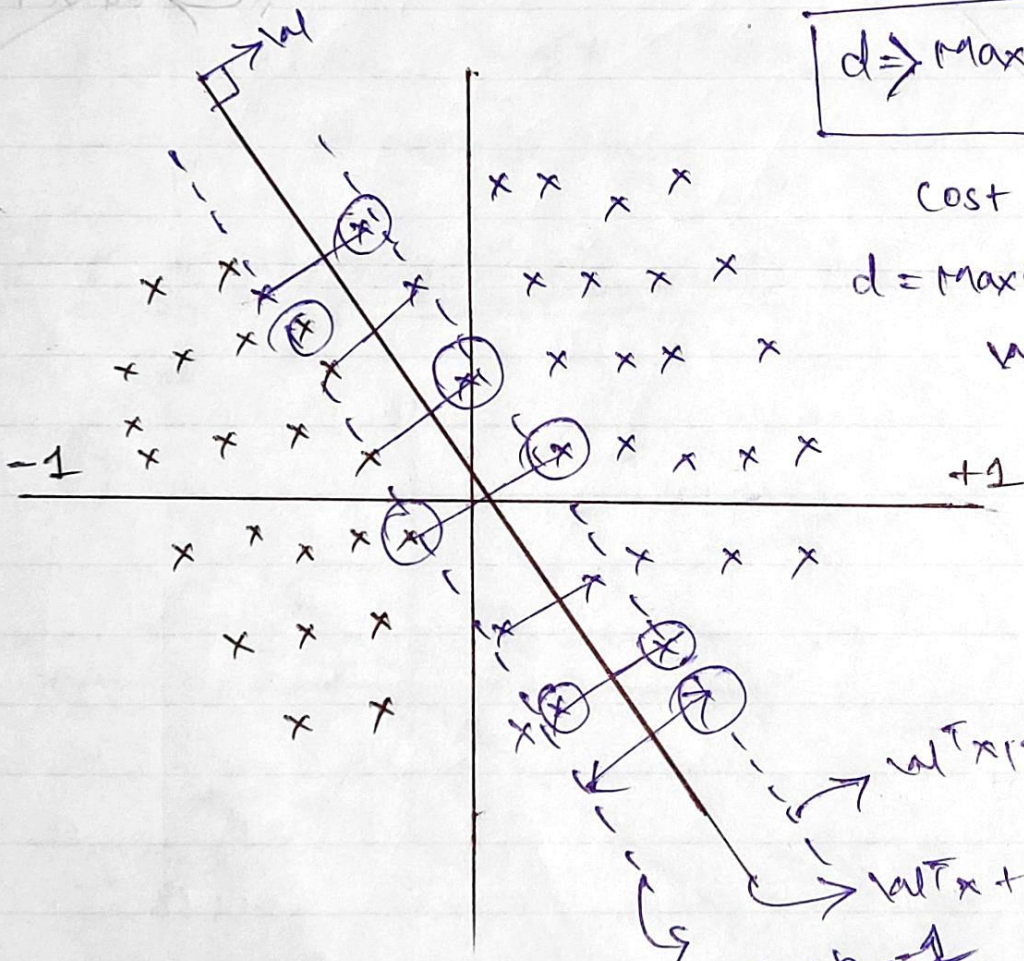 w
d ⇒ Max
Cost
d = Max
w
-1
+1
wᵀx
wᵀx +
-1